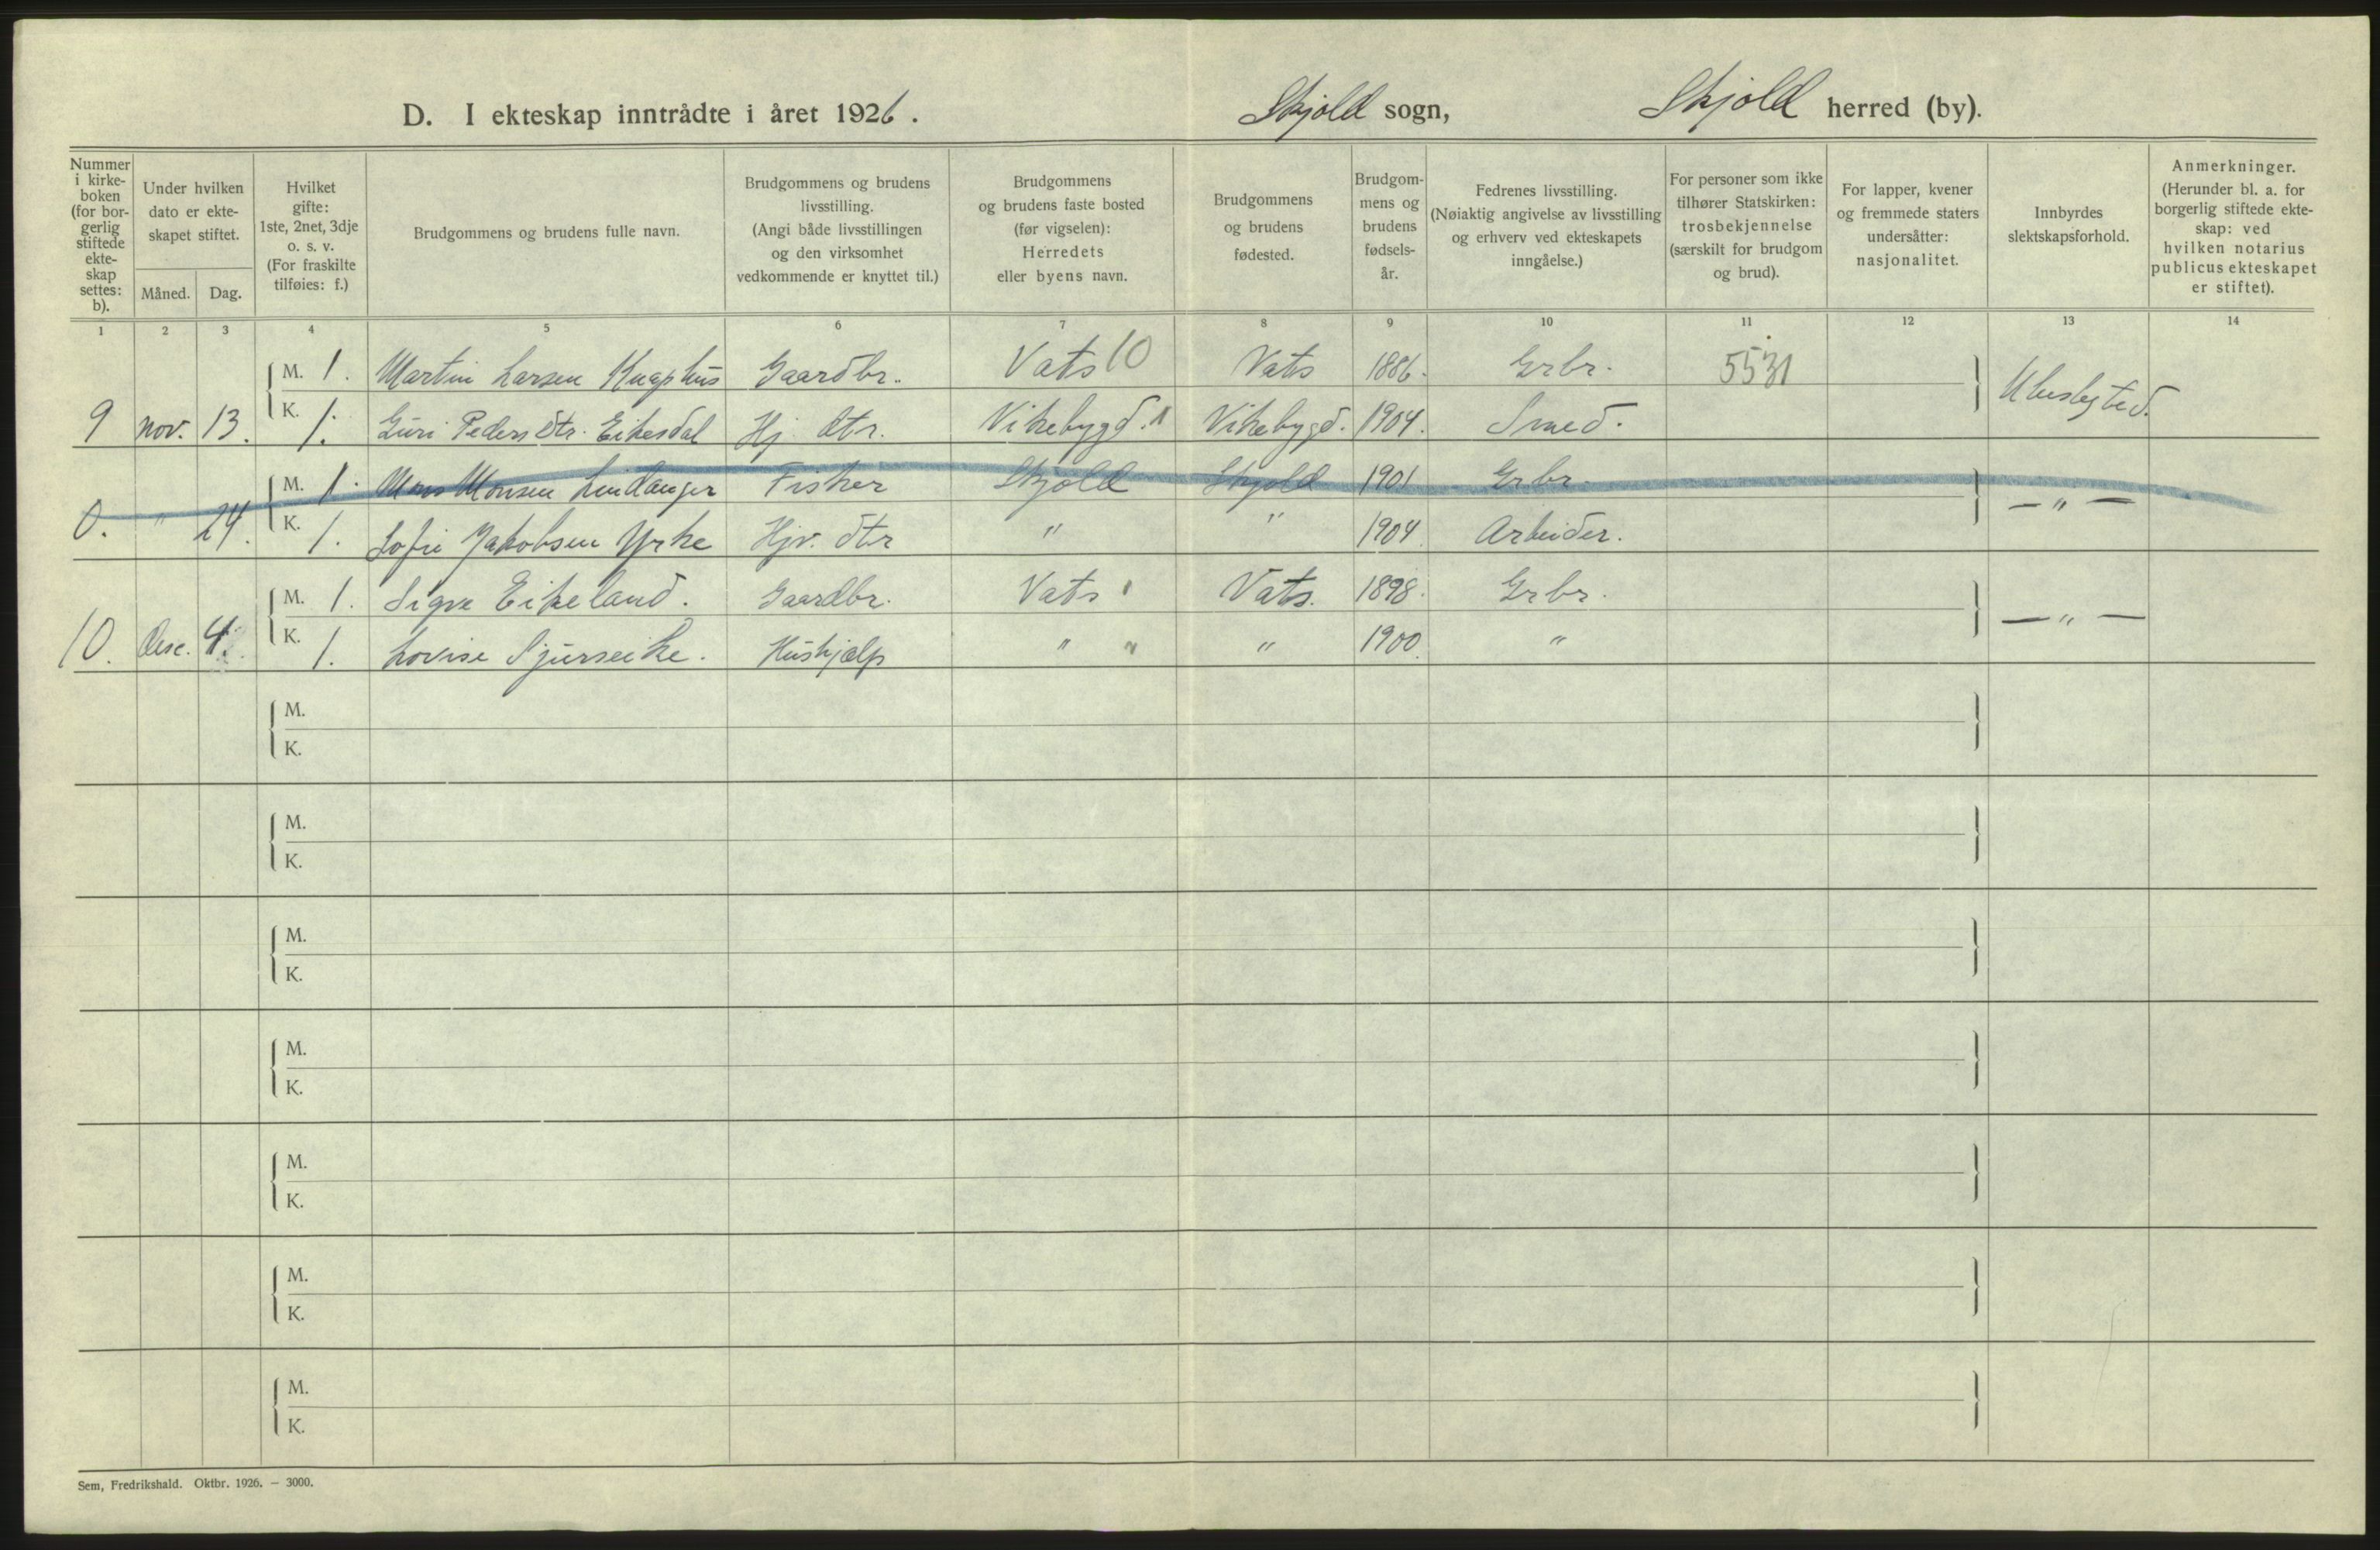 D. I ekteskap inntrådte i året 1926. Skjold sogn, Skjold herred (by).
Nummer i kirke-boken (for bor-gerlig stiftede ekte-skap settes: b).
Under hvilken dato er ekte-skapet stiftet.
Måned. Dag.
Hvilket gifte: 1ste, 2net, 3dje o. s. v. (For fraskilte tilføies: f.)
Brudgommens og brudens fulle navn.
Brudgommens og brudens livsstilling. (Angi både livsstillingen og den virksomhet vedkommende er knyttet til.)
Brudgommens og brudens faste bosted (før vigselen): Herredets eller byens navn.
Brudgommens og brudens fødested.
Brudgom-mens og brudens fødsels-år.
Fedrenes livsstilling. (Nøiaktig angivelse av livsstilling og erhverv ved ekteskapets inngåelse.)
For personer som ikke tilhører Statskirken: trosbekjennelse (særskilt for brudgom og brud).
For lapper, kvener og fremmede staters undersåtter: nasjonalitet.
Innbyrdes slektskapsforhold.
Anmerkninger. (Herunder bl. a. for borgerlig stiftede ekte-skap: ved hvilken notarius publicus ekteskapet er stiftet).
1 2 3 4 5 6 7 8 9 10 11 12 13 14
M. 1. Martin Larsen Knaphus Gaardbr. Vats 10 Vats 1886. Grbr. 5531 Ubeslegted.
9 nov. 13. K. 1. Guri Pedersdtr. Eikesdal Hj. dtr. Vikebygd. 1 Vikebygd. 1904. Smed.
M. 1. Mons Monsen Lindanger Fisker Skjold Skjold 1901 Grbr. — " —
0. " 24. K. 1. Sofie Jakobsen Yrke Hjv. dtr " " 1904 Arbeider.
M. 1. Sigve Eikeland. Gaardbr. Vats Vats. 1898. Grbr. — " —
10. Dese. 4. K. 1. Lovise Sjurseike. Hushjælp " " " 1900. "
M.
K.
M.
K.
M.
K.
M.
K.
M.
K.
M.
K.
M.
K.
Sem, Fredrikshald. Oktbr. 1926. — 3000.